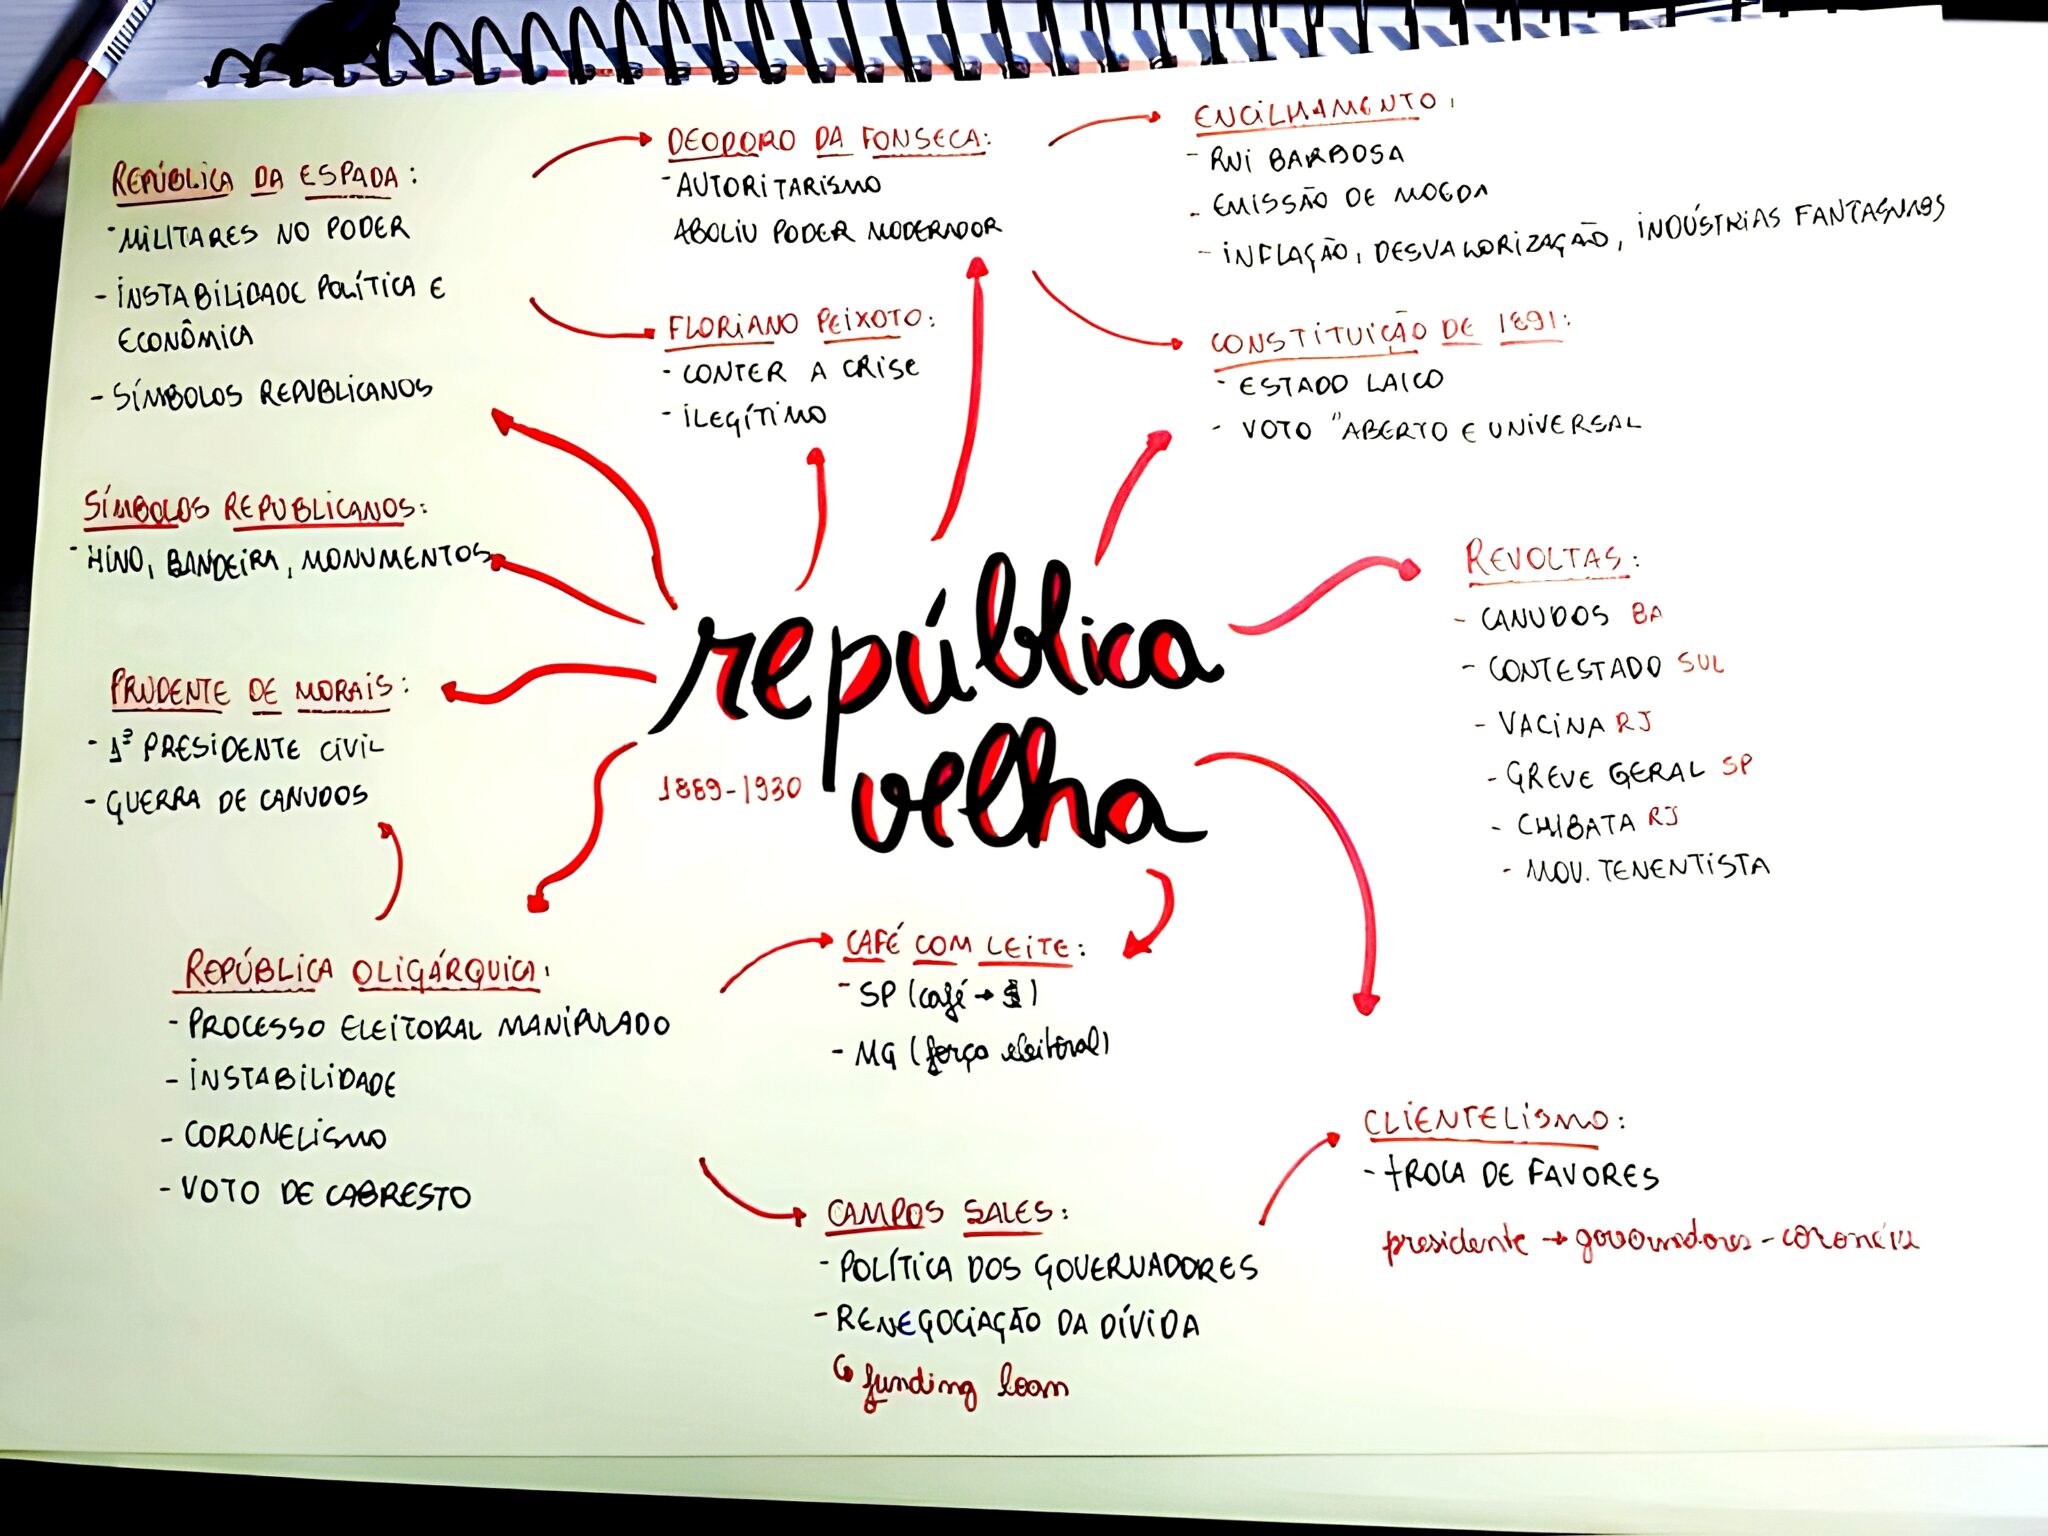 REPÚBLICA DA ESPADA:
- MILITARES NO PODER
- INSTABILIDADE POLÍTICA E
ECONÔMICA
- SÍMBOLOS REPUBLICANOS
DEODORO DA FONSECA:
- AUTORITARISMO
ABOLIU PODER MODERADOR
FLORIANO PEIXOTO:
- CONTER A CRISE
- ILEGÍTIMO
ENCILHAMENTO:
- RUI BARBOSA
- EMISSÃO DE MOEDA
- INFLAÇÃO, DESVALORIZAÇÃO, INDÚSTRIAS FANTASMAS
CONSTITUIÇÃO DE 1891:
- ESTADO LAICO
- VOTO "ABERTO E UNIVERSAL
SÍMBOLOS REPUBLICANOS:
- HINO, BANDEIRA, MONUMENTOS
PRUDENTE DE MORAIS:
- 1º PRESIDENTE CIVIL
- GUERRA DE CANUDOS
república
velha
1889-1930
REVOLTAS:
- CANUDOS BA
- CONTESTADO SUL
- VACINA RJ
- GREVE GERAL SP
- CHIBATA RJ
- MOV. TENENTISTA
REPÚBLICA OLIGÁRQUICA:
- PROCESSO ELEITORAL MANIPULADO
- INSTABILIDADE
- CORONELISMO
- VOTO DE CABRESTO
CAFÉ COM LEITE:
- SP (café → $)
- MG (força eleitoral)
CAMPOS SALES:
- POLÍTICA DOS GOVERNADORES
- RENEGOCIAÇÃO DA DÍVIDA
↳ funding loan
CLIENTELISMO:
- TROCA DE FAVORES
presidente → governadores - coronéis